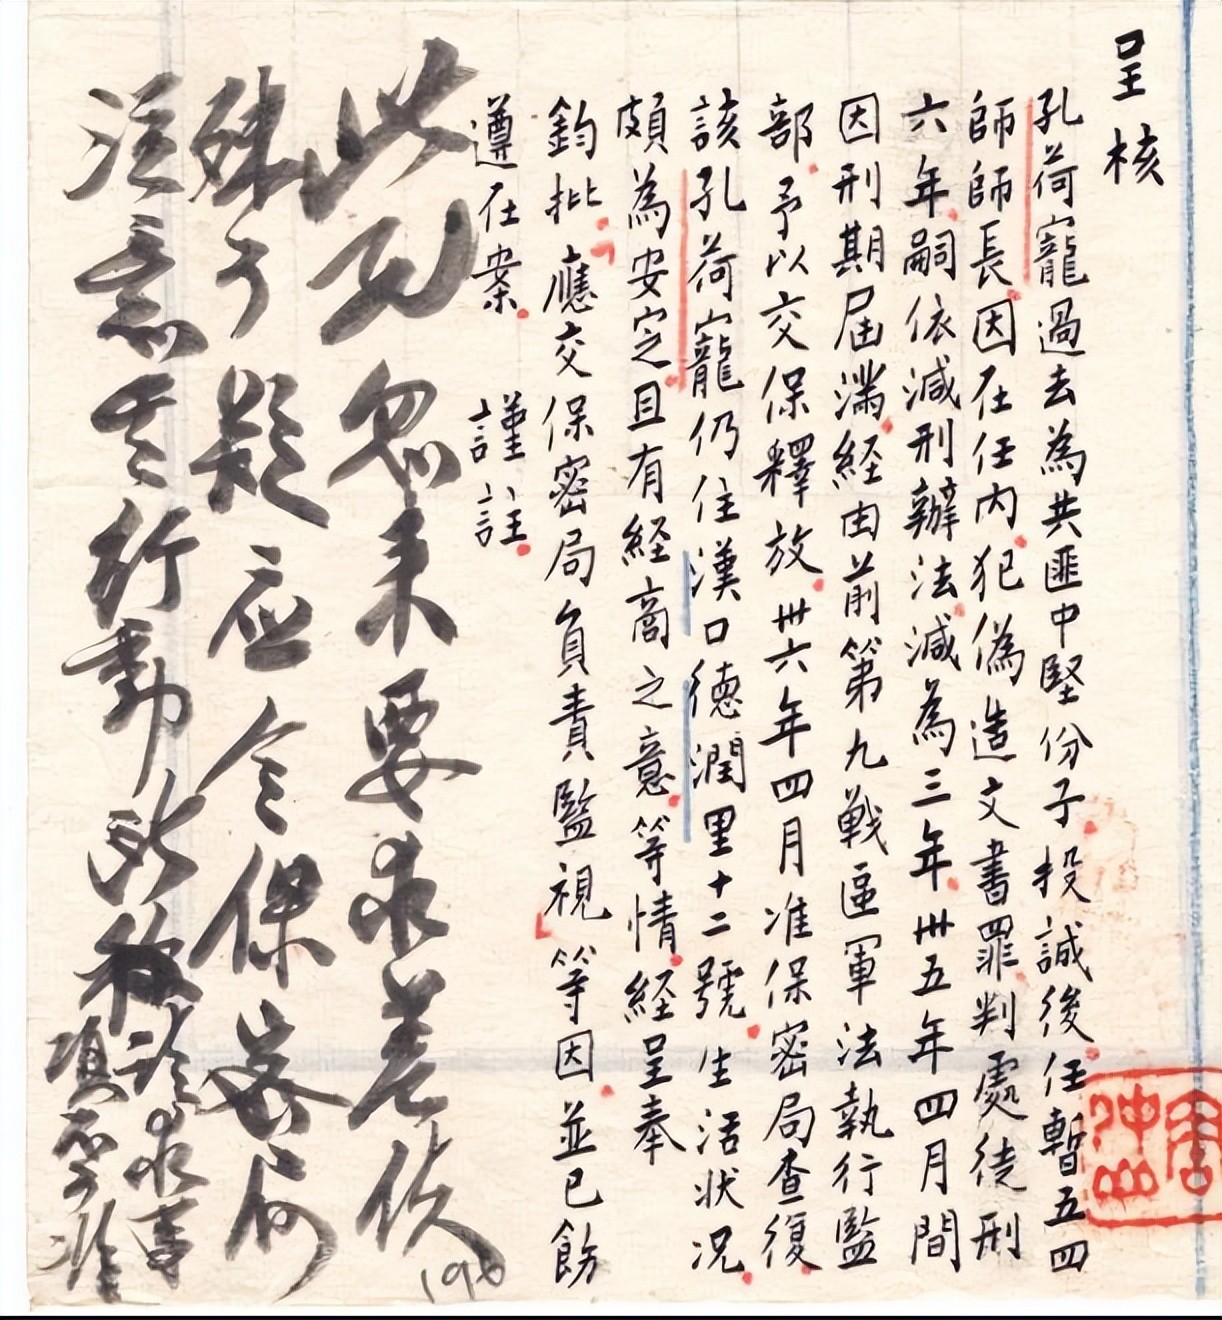 呈核
孔荷寵過去為共匪中堅份子投誠後任暫五四
師師長因在任內犯偽造文書罪判處徒刑
六年嗣依減刑辦法減為三年卅五年四月間
因刑期屆滿経由前第九戰區軍法執行監
部予以交保釋放卅六年四月准保密局查復
該孔荷寵仍住漢口德潤里十二號生活狀況
頗為安定且有経商之意等情経呈奉
鈞批應交保密局負責監視等因並已飭
遵在案 謹註
此又忽来要求差使
殊可疑应令保密局
注意其行動所稱
求事
項不准
190